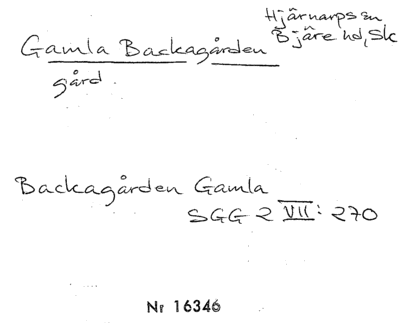 Hjärnarps sn
Gamla Backagården Bjäre hd, Sk
gård.
Backagården Gamla
SGG 2 VII: 270
Nr 16346